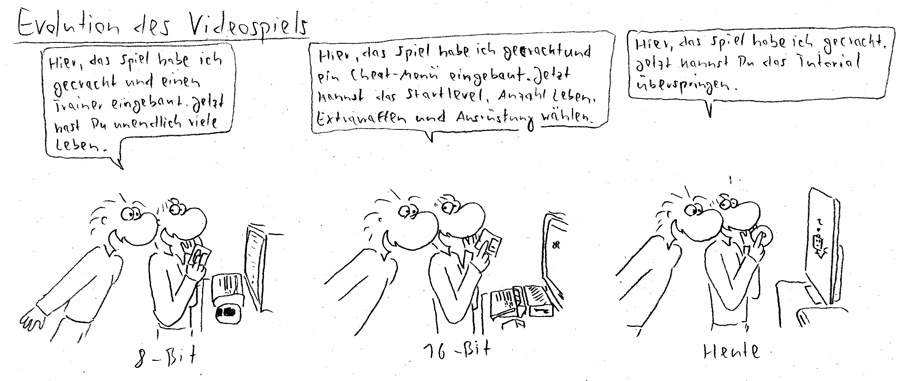 Evolution des Videospiels
Hier, das Spiel habe ich
gecracht und einen
Trainer eingebaut. Jetzt
hast Du unendlich viele
Leben.
Hier, das Spiel habe ich gecracht und
ein Cheat-Menü eingebaut. Jetzt
kannst das Startlevel, Anzahl Leben,
Extrawaffen und Ausrüstung wählen.
Hier, das Spiel habe ich gecracht.
Jetzt kannst Du das Tutorial
überspringen.
8-Bit
16-Bit
Heute